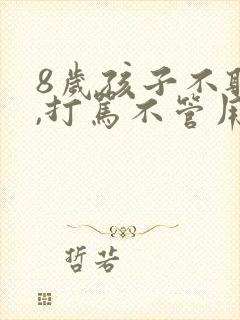 8歲孩子不
,打罵不管
哲若